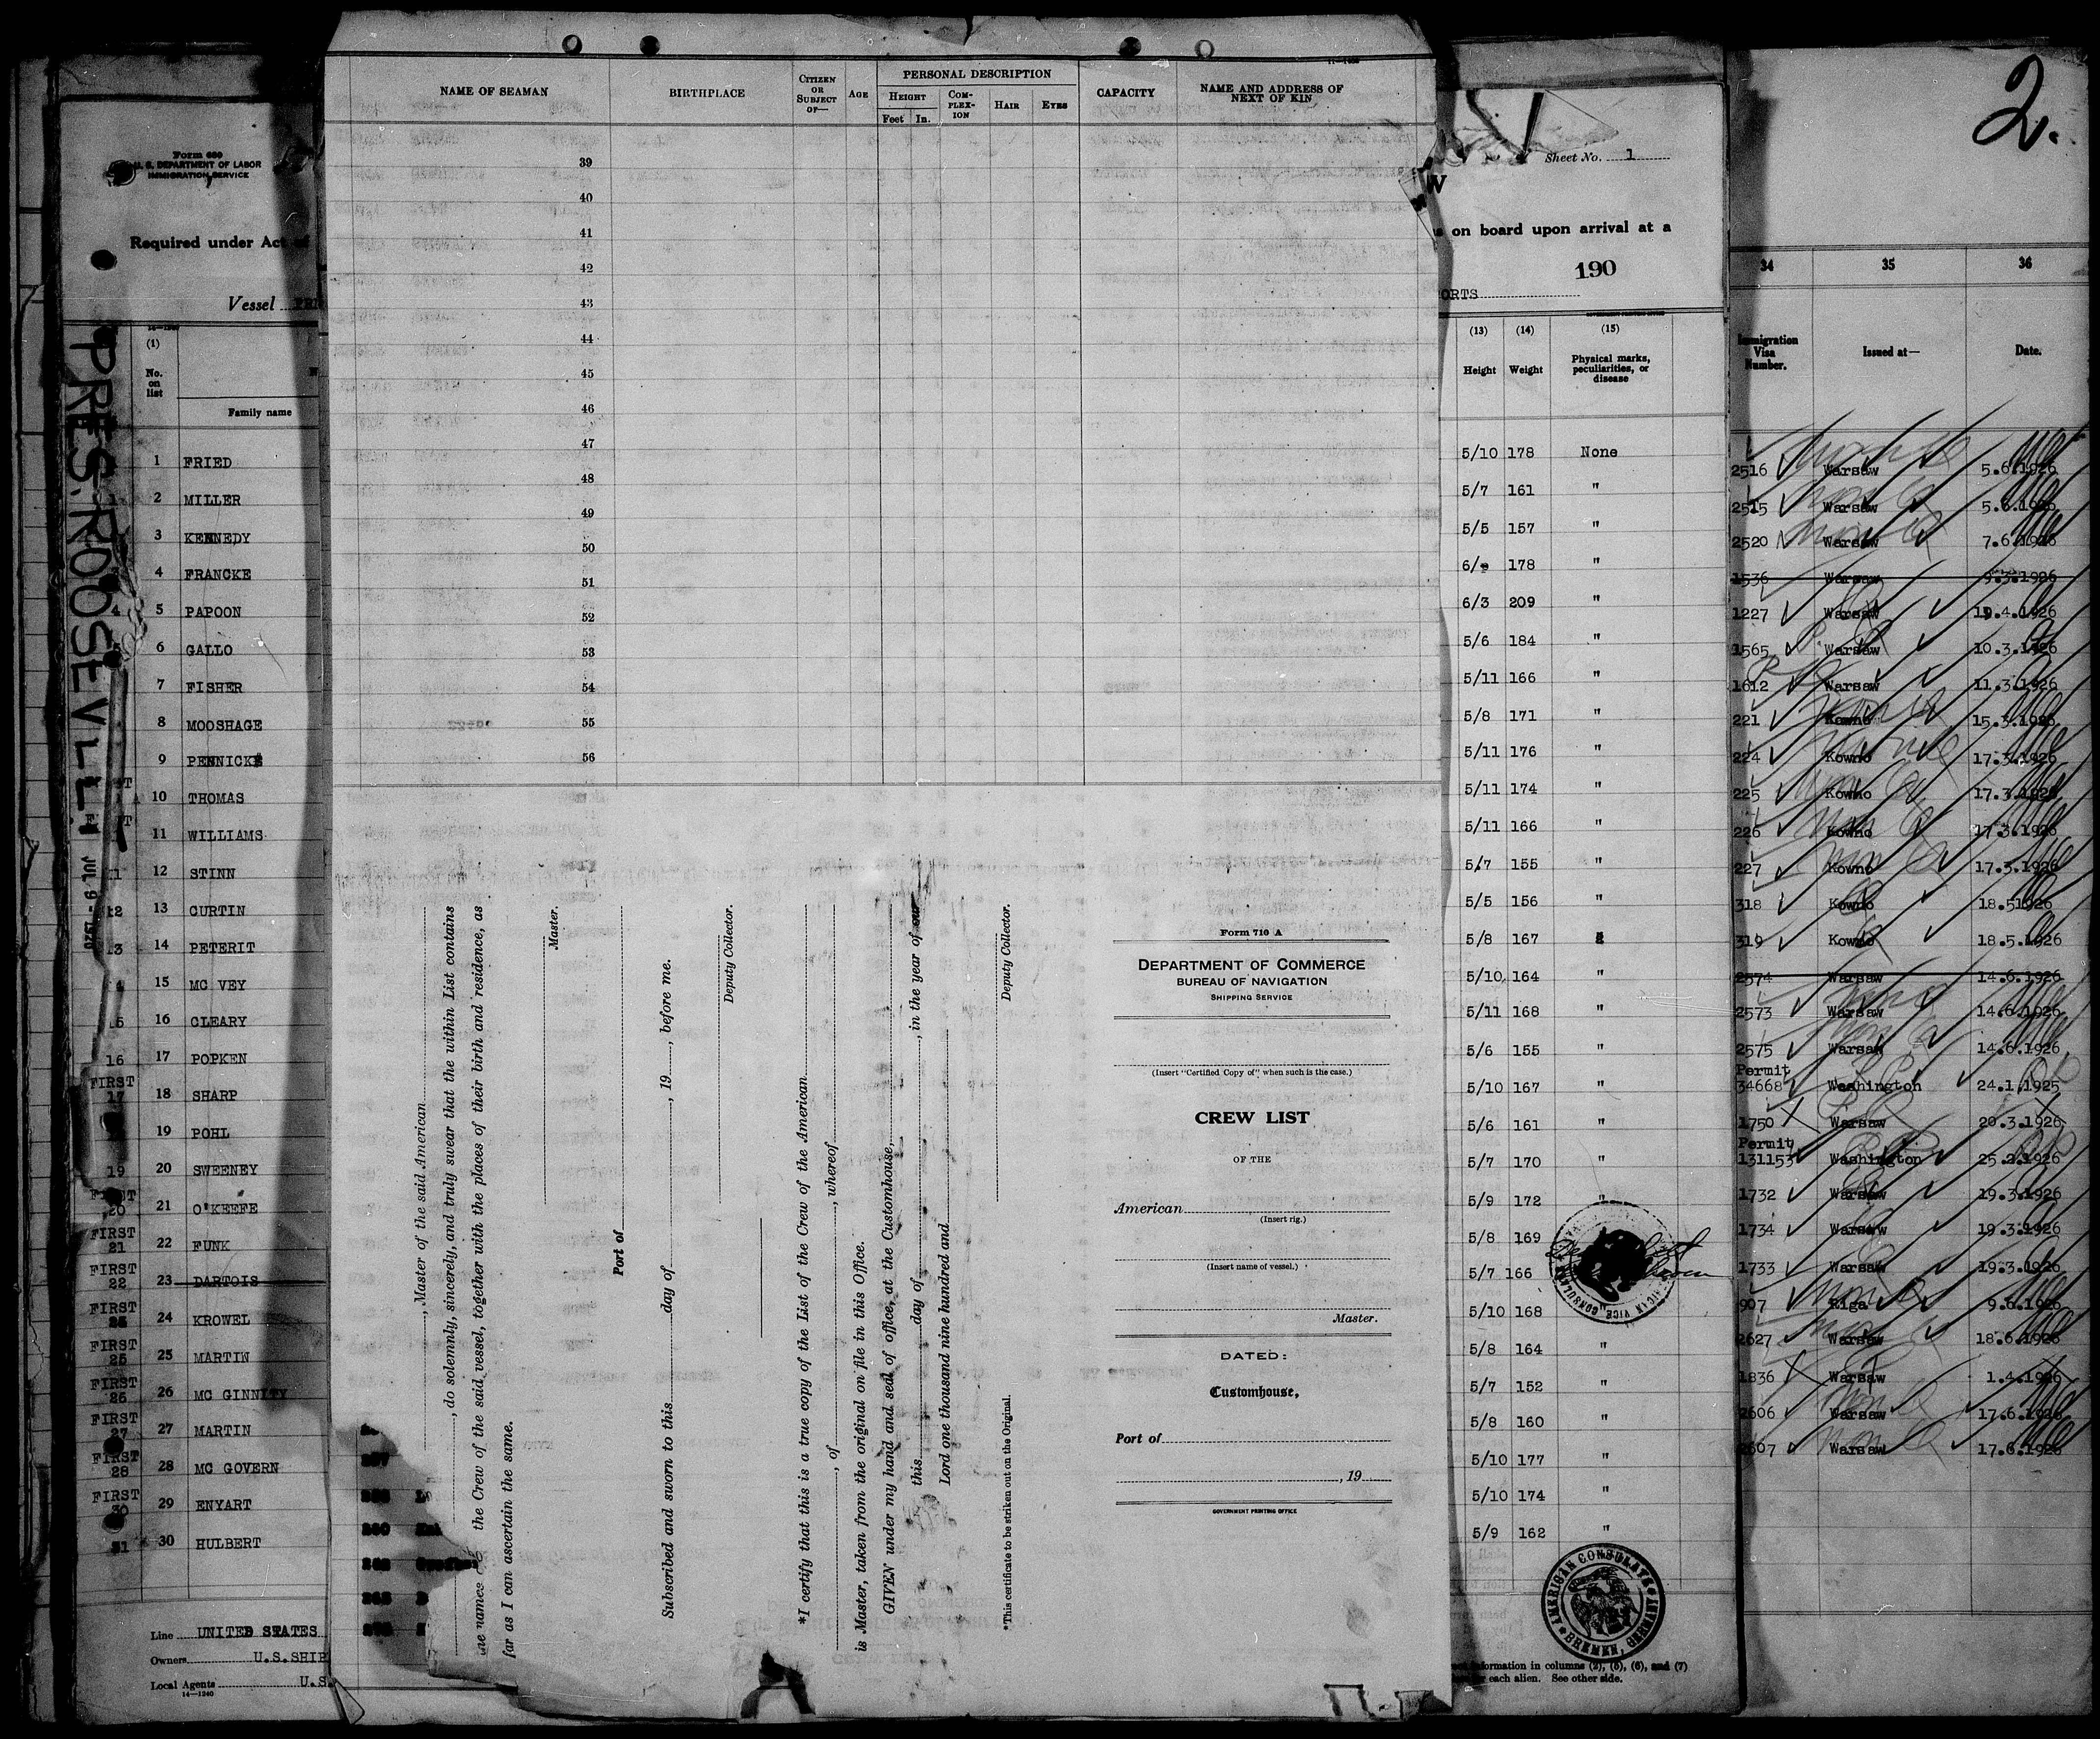 2.
Form 680
U. S. DEPARTMENT OF LABOR
IMMIGRATION SERVICE
Required under Act of
Vessel
PRES. ROOSEVELT
JUL 9 - 1926
(1)
No. on list
Family name
1 FRIED
2 MILLER
3 KENNEDY
4 FRANCKE
5 PAPOON
6 GALLO
7 FISHER
8 MOOSHAGE
9 PENNICK
10 THOMAS
11 WILLIAMS
12 STINN
13 CURTIN
14 PETERIT
15 MC VEY
16 CLEARY
16 17 POPKEN
FIRST 17 18 SHARP
19 POHL
19 20 SWEENEY
20 21 O'KEEFE
FIRST 21 22 FUNK
FIRST 22 23 DARTOIS
FIRST 24 KROWEL
FIRST 25 25 MARTIW
FIRST 26 26 MC GINNITY
FIRST 27 27 MARTIN
FIRST 28 28 MC GOVERN
FIRST 30 29 ENYART
31 30 HULBERT
Line UNITED STATES
Owners U.S.SHIP
Local Agents U.S.
14—1240
NAME OF SEAMAN
BIRTHPLACE
CITIZEN OR SUBJECT OF—
AGE
PERSONAL DESCRIPTION
HEIGHT
Feet In.
COM-PLEX-ION
HAIR
EYES
CAPACITY
NAME AND ADDRESS OF NEXT OF KIN
39
40
41
42
43
44
45
46
47
48
49
50
51
52
53
54
55
56
, Master of the said American
, do solemnly, sincerely, and truly swear that the within List contains
the names of the Crew of the said vessel, together with the places of their birth and residence, as
far as I can ascertain the same.
Master.
Port of
Subscribed and sworn to this day of , 19 , before me.
Deputy Collector.
*I certify that this is a true copy of the List of the Crew of the American
, of , whereof
is Master, taken from the original on file in this Office.
GIVEN under my hand and seal of office, at the Customhouse,
this day of , in the year of our
Lord one thousand nine hundred and
Deputy Collector.
*This certificate to be striken out on the Original.
Form 710 A
DEPARTMENT OF COMMERCE
BUREAU OF NAVIGATION
SHIPPING SERVICE
(Insert "Certified Copy of" when such is the case.)
CREW LIST
OF THE
American
(Insert rig.)
(Insert name of vessel.)
Master.
DATED:
Customhouse,
Port of
, 19
GOVERNMENT PRINTING OFFICE
Sheet No. 1
W
on board upon arrival at a
190
ORTS
(13) (14) (15)
Height Weight Physical marks, peculiarities, or disease
5/10 178 None
5/7 161 "
5/5 157 "
6/ 178 "
6/3 209 "
5/6 184 "
5/11 166 "
5/8 171 "
5/11 176 "
5/11 174 "
5/11 166 "
5/7 155 "
5/5 156 "
5/8 167
5/10 164 "
5/11 168 "
5/6 155 "
5/10 167 "
5/6 161 "
5/7 170 "
5/9 172 "
5/8 169
5/7 166
5/10 168
5/8 164 "
5/7 152 "
5/8 160 "
5/10 177 "
5/10 174 "
5/9 162 "
AMERICAN CONSULATE
BREMEN, GERMANY
information in columns (2), (5), (6), and (7)
each alien. See other side.
34 35 36
Immigration Visa Number. Issued at— Date.
2516 Warsaw 5.6.1926
2515 Warsaw 5.6.1926
2520 Warsaw 7.6.1926
1536 Warsaw 9.3.1926
1227 Warsaw 19.4.1926
1565 Warsaw 10.3.1926
1612 Warsaw 11.3.1926
221 Kowno 15.3.1926
224 Kowno 17.3.1926
225 Kowno 17.3.1926
226 Kowno 17.3.1926
227 Kowno 17.3.1926
318 Kowno 18.5.1926
319 Kowno 18.5.1926
2574 Warsaw 14.6.1926
2573 Warsaw 14.6.1926
2575 Warsaw 14.6.1926
Permit
34668 Washington 24.1.1925
1750 Warsaw 20.3.1926
Permit
131153 Washington 25.2.1926
1732 Warsaw 19.3.1926
1734 Warsaw 19.3.1926
1733 Warsaw 19.3.1926
907 Riga 9.6.1926
2627 Warsaw 18.6.1926
1836 Warsaw 1.4.1926
2606 Warsaw 17.6.1926
2607 Warsaw 17.6.1926